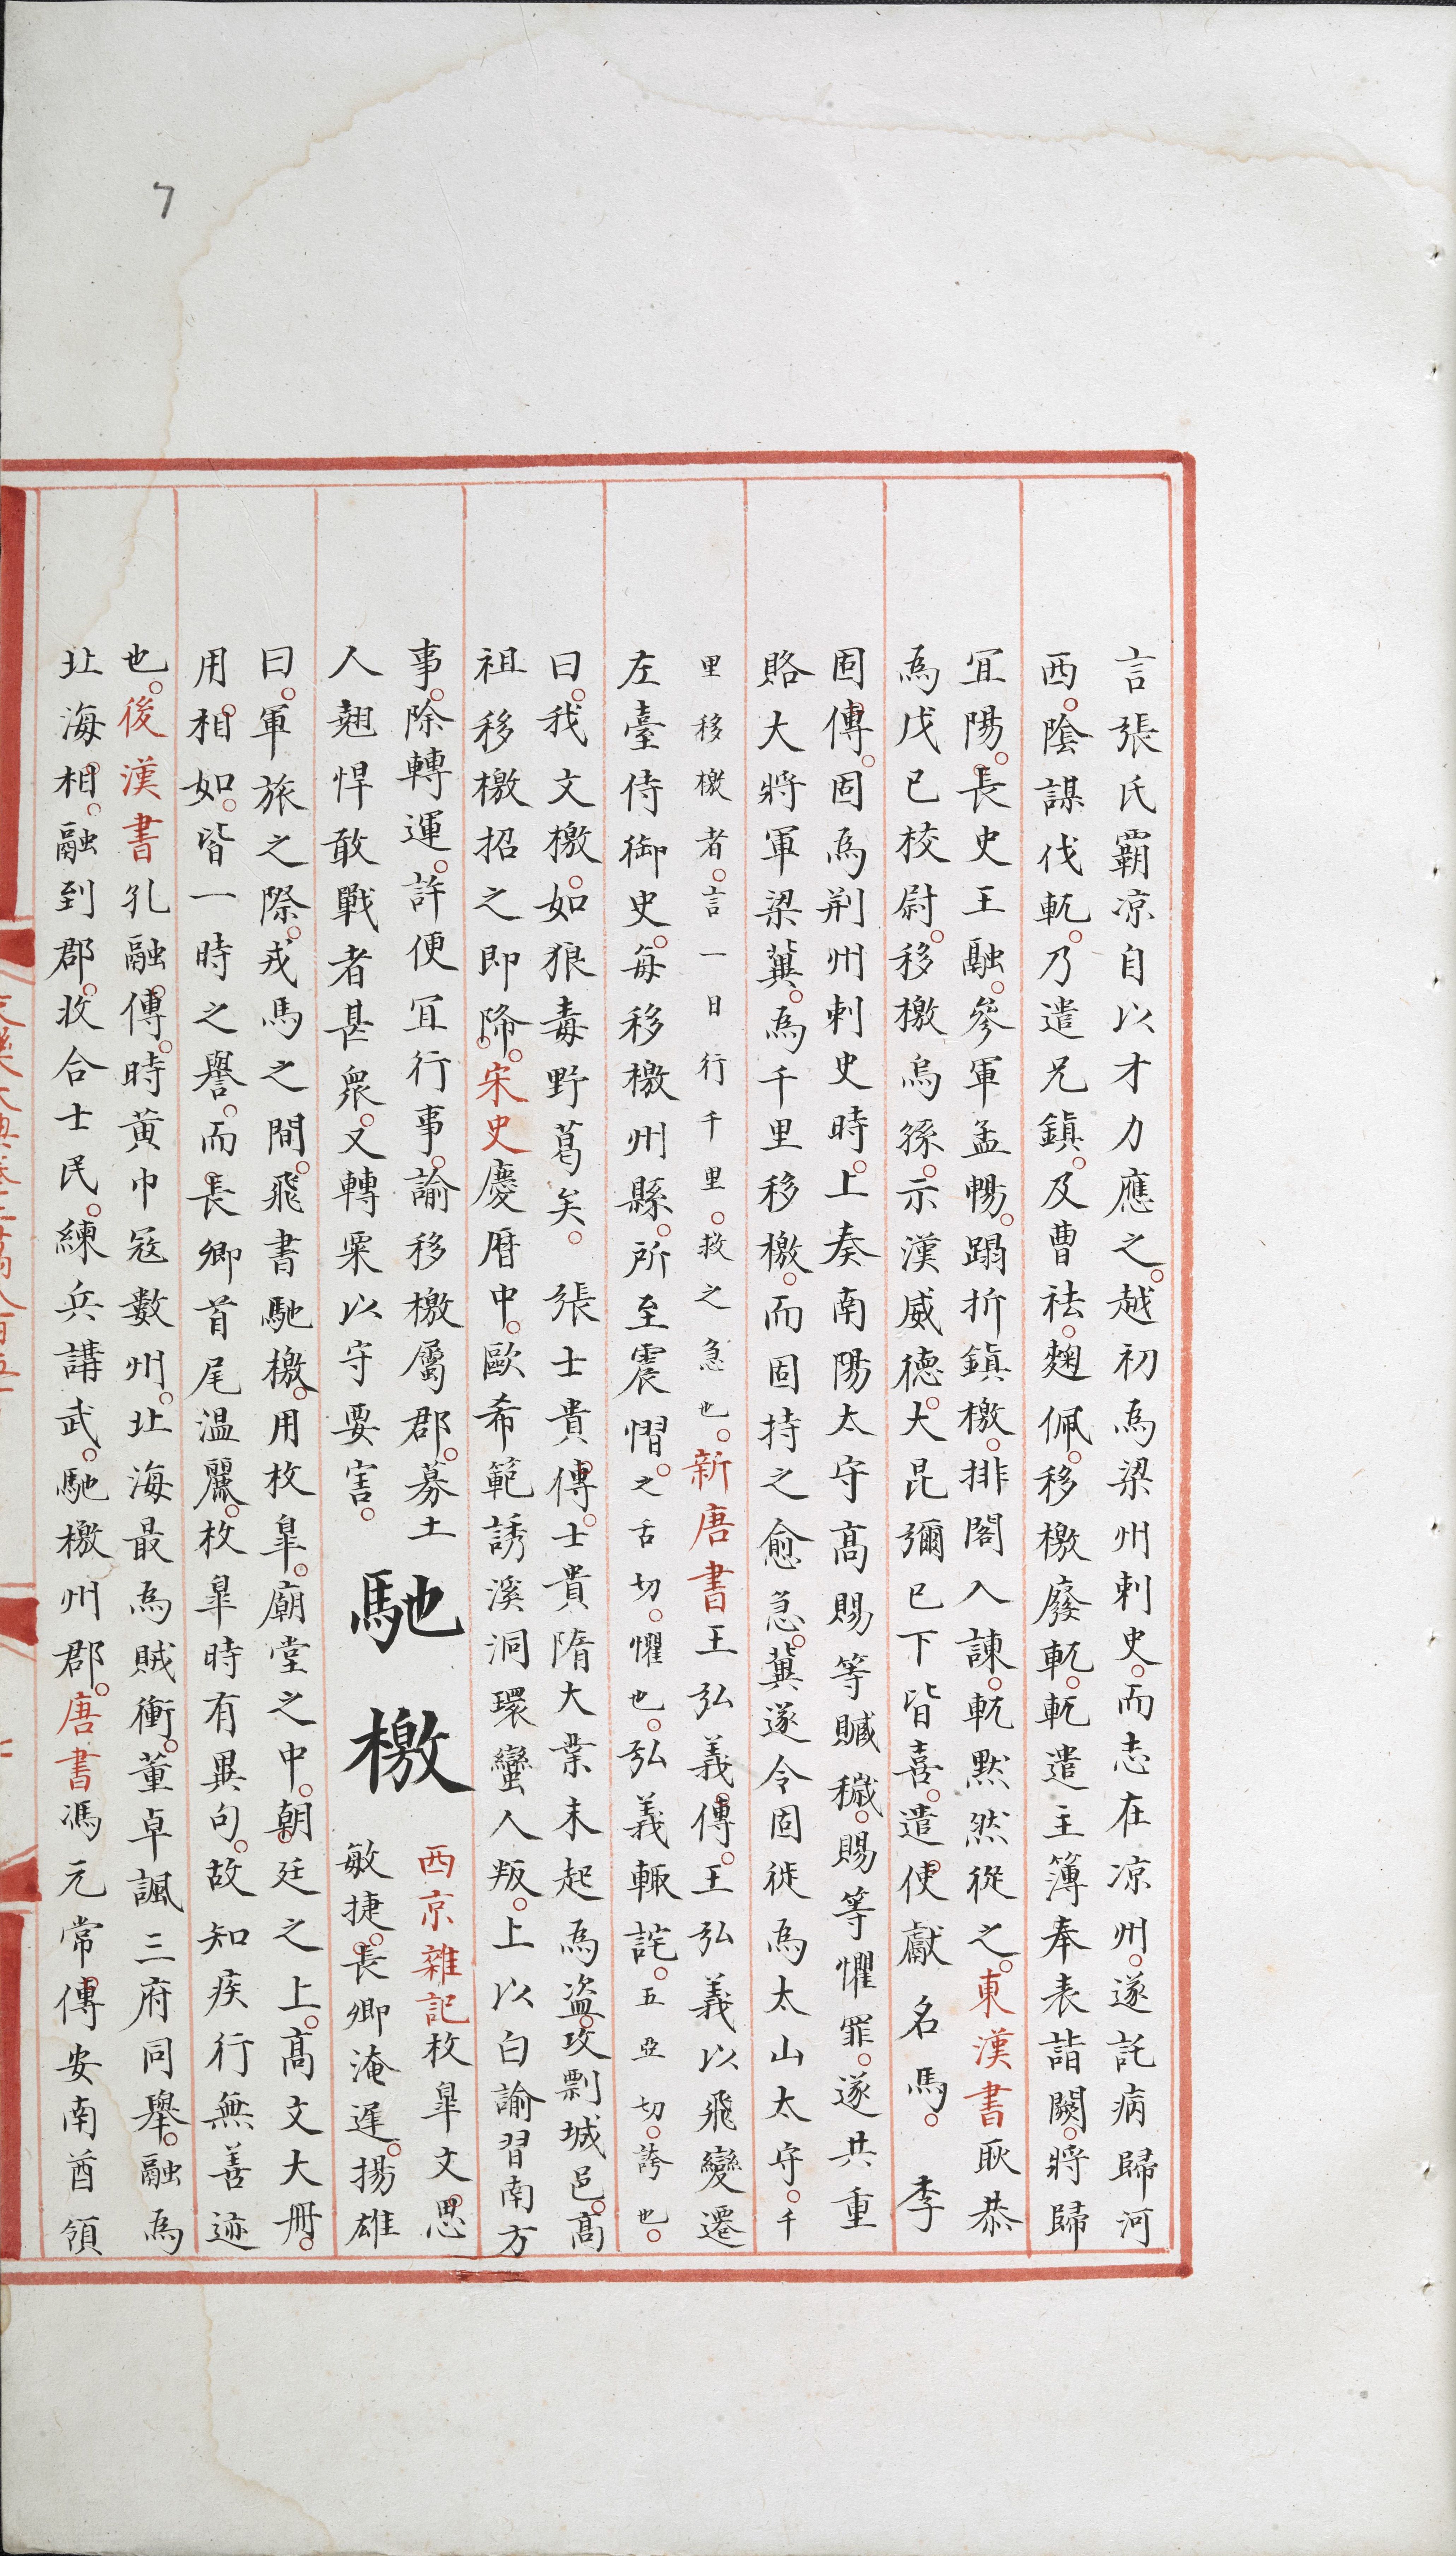 7
言張氏霸凉自以才力應之。越初為梁州刺史。而志在凉州。遂託病歸河
西。陰謀伐軏。乃遣兄鎮。及曹祛。麹佩。移檄廢軏。軏遣主簿奉表詣闕。將歸
冝陽。長史王融。參軍孟暢。蹋折鎮檄。排閤入諫。軏默然從之。東漢書耿恭
為戊巳校尉。移檄烏孫。示漢威德。大昆彌巳下皆喜。遣使獻名馬。 李
固傳。固為荆州刺史時。上奏南陽太守高賜等贓穢。賜等懼罪。遂共重
賂大將軍梁冀。為千里移檄。而固持之愈急。冀遂令固徙為太山太守。千
里移檄者。言一日行千里。救之急也。新唐書王弘義傳。王弘義以飛變遷
左臺侍御史。每移檄州縣。所至震慴。之舌切。懼也。弘義輙詫。五亞切。誇也。
曰。我文檄。如狼毒野葛矣。 張士貴傳。士貴隋大業末起為盗。攻剽城邑。高
祖移檄招之即降。宋史慶曆中。歐希範誘溪洞環蠻人叛。上以白諭習南方
事。除轉運。許便冝行事。諭移檄屬郡。募土
人趐悍敢戰者甚衆。又轉粟以守要害。
馳檄
西京雜記枚臯文思
敏捷。長卿淹遲。揚雄
曰。軍旅之際。戎馬之間。飛書馳檄。用枚臯。廟堂之中。朝廷之上。高文大冊。
用相如。皆一時之譽。而長卿首尾温麗。枚臯時有異句。故知疾行無善迹
也。後漢書孔融傳。時黄巾冦數州。北海最為賊衝。董卓諷三府同舉。融為
北海相。融到郡。收合士民。練兵講武。馳檄州郡。唐書馮元常傳安南酋領